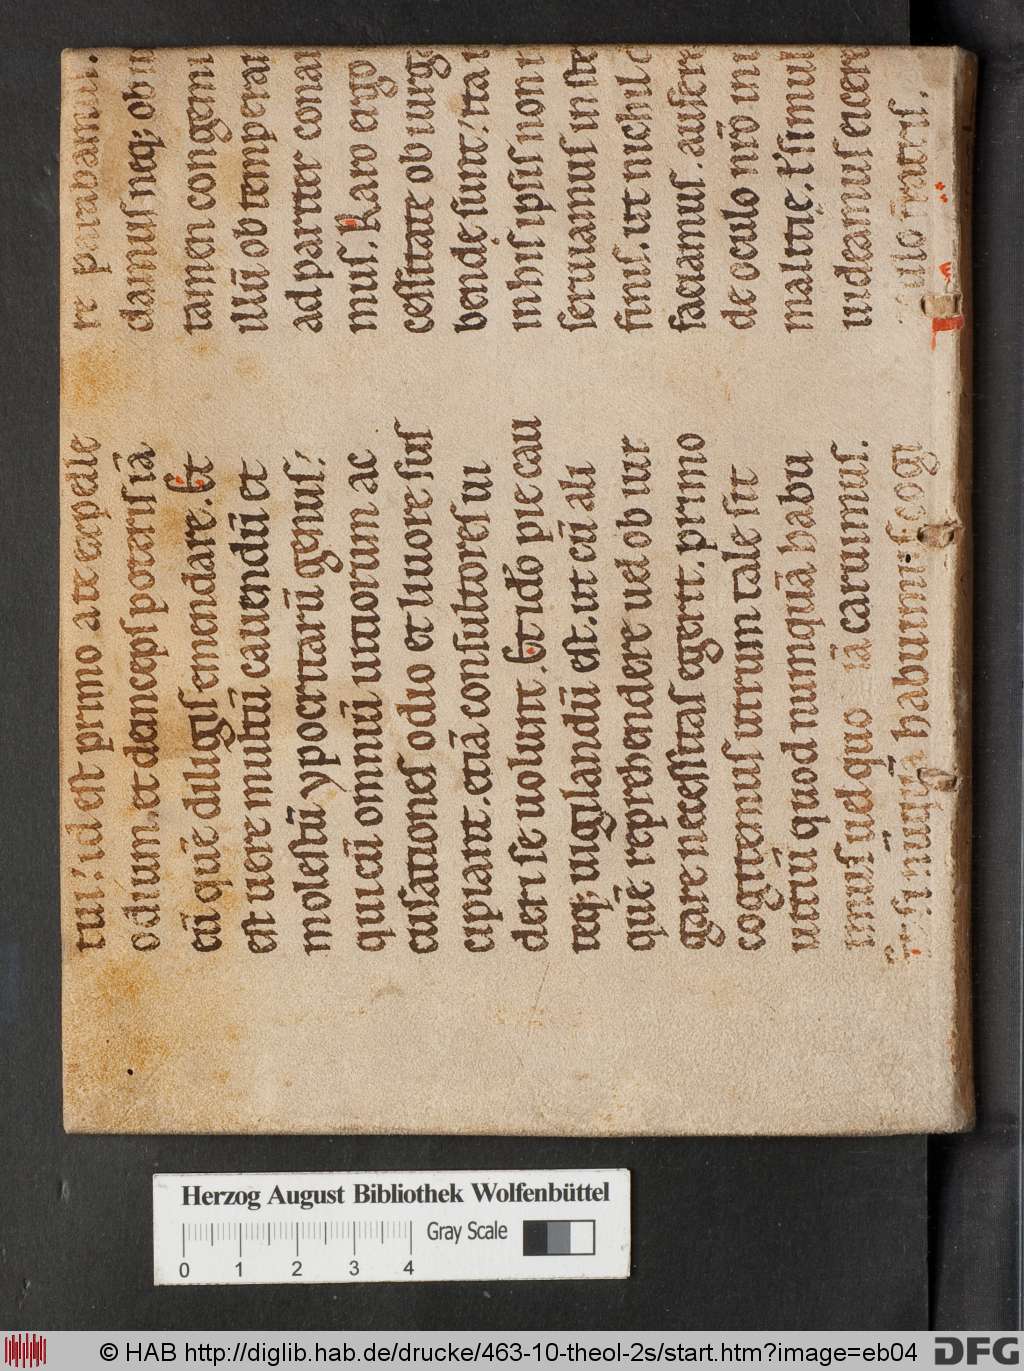 tui; id est primo a te expelle
odium. et deinceps poteris iā
eū quē diligis emendare. Et
est uere multū cauendū et
molestū ypocritarū genus;
qui cū omniū uitiorum ac
cusationes odio et liuore sus
cipiant. etiā consultores ui
deri se uolunt. Et idō pie cau
teq; uigilandū est. ut cū ali
quē reprehendere uel ob iur
gare necessitas egerit. primo
cogitemus utrum tale sit
uitiū quod numquā habu
imus uel quo iā caruimus.
et si nūquā habuimus cogi
re parabamur.
damus neq; ob iu
tamen congemi
illū ob temperar
ad pariter conar
mus. Raro ergo
cessitate ob iurg
bende sunt; ita
in his ipsis non
seruiamus insta
finis. ut nichil
faciamus. aufere
de oculo nrō in
malitie. t' simul
uideamus eicere
illo fratris.
Herzog August Bibliothek Wolfenbüttel
Gray Scale
0 1 2 3 4
© HAB http://diglib.hab.de/drucke/463-10-theol-2s/start.htm?image=eb04
DFG